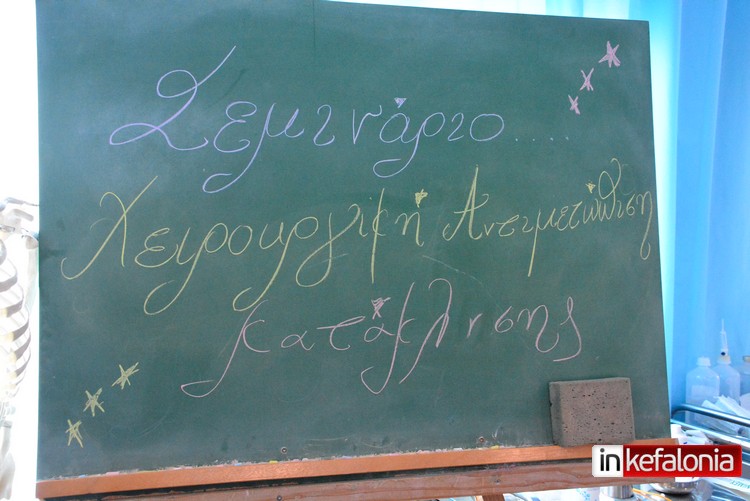 Σεμινάριο....
Χειρουργική Αντιμετώπιση
κατάκλισης
inkefalonia